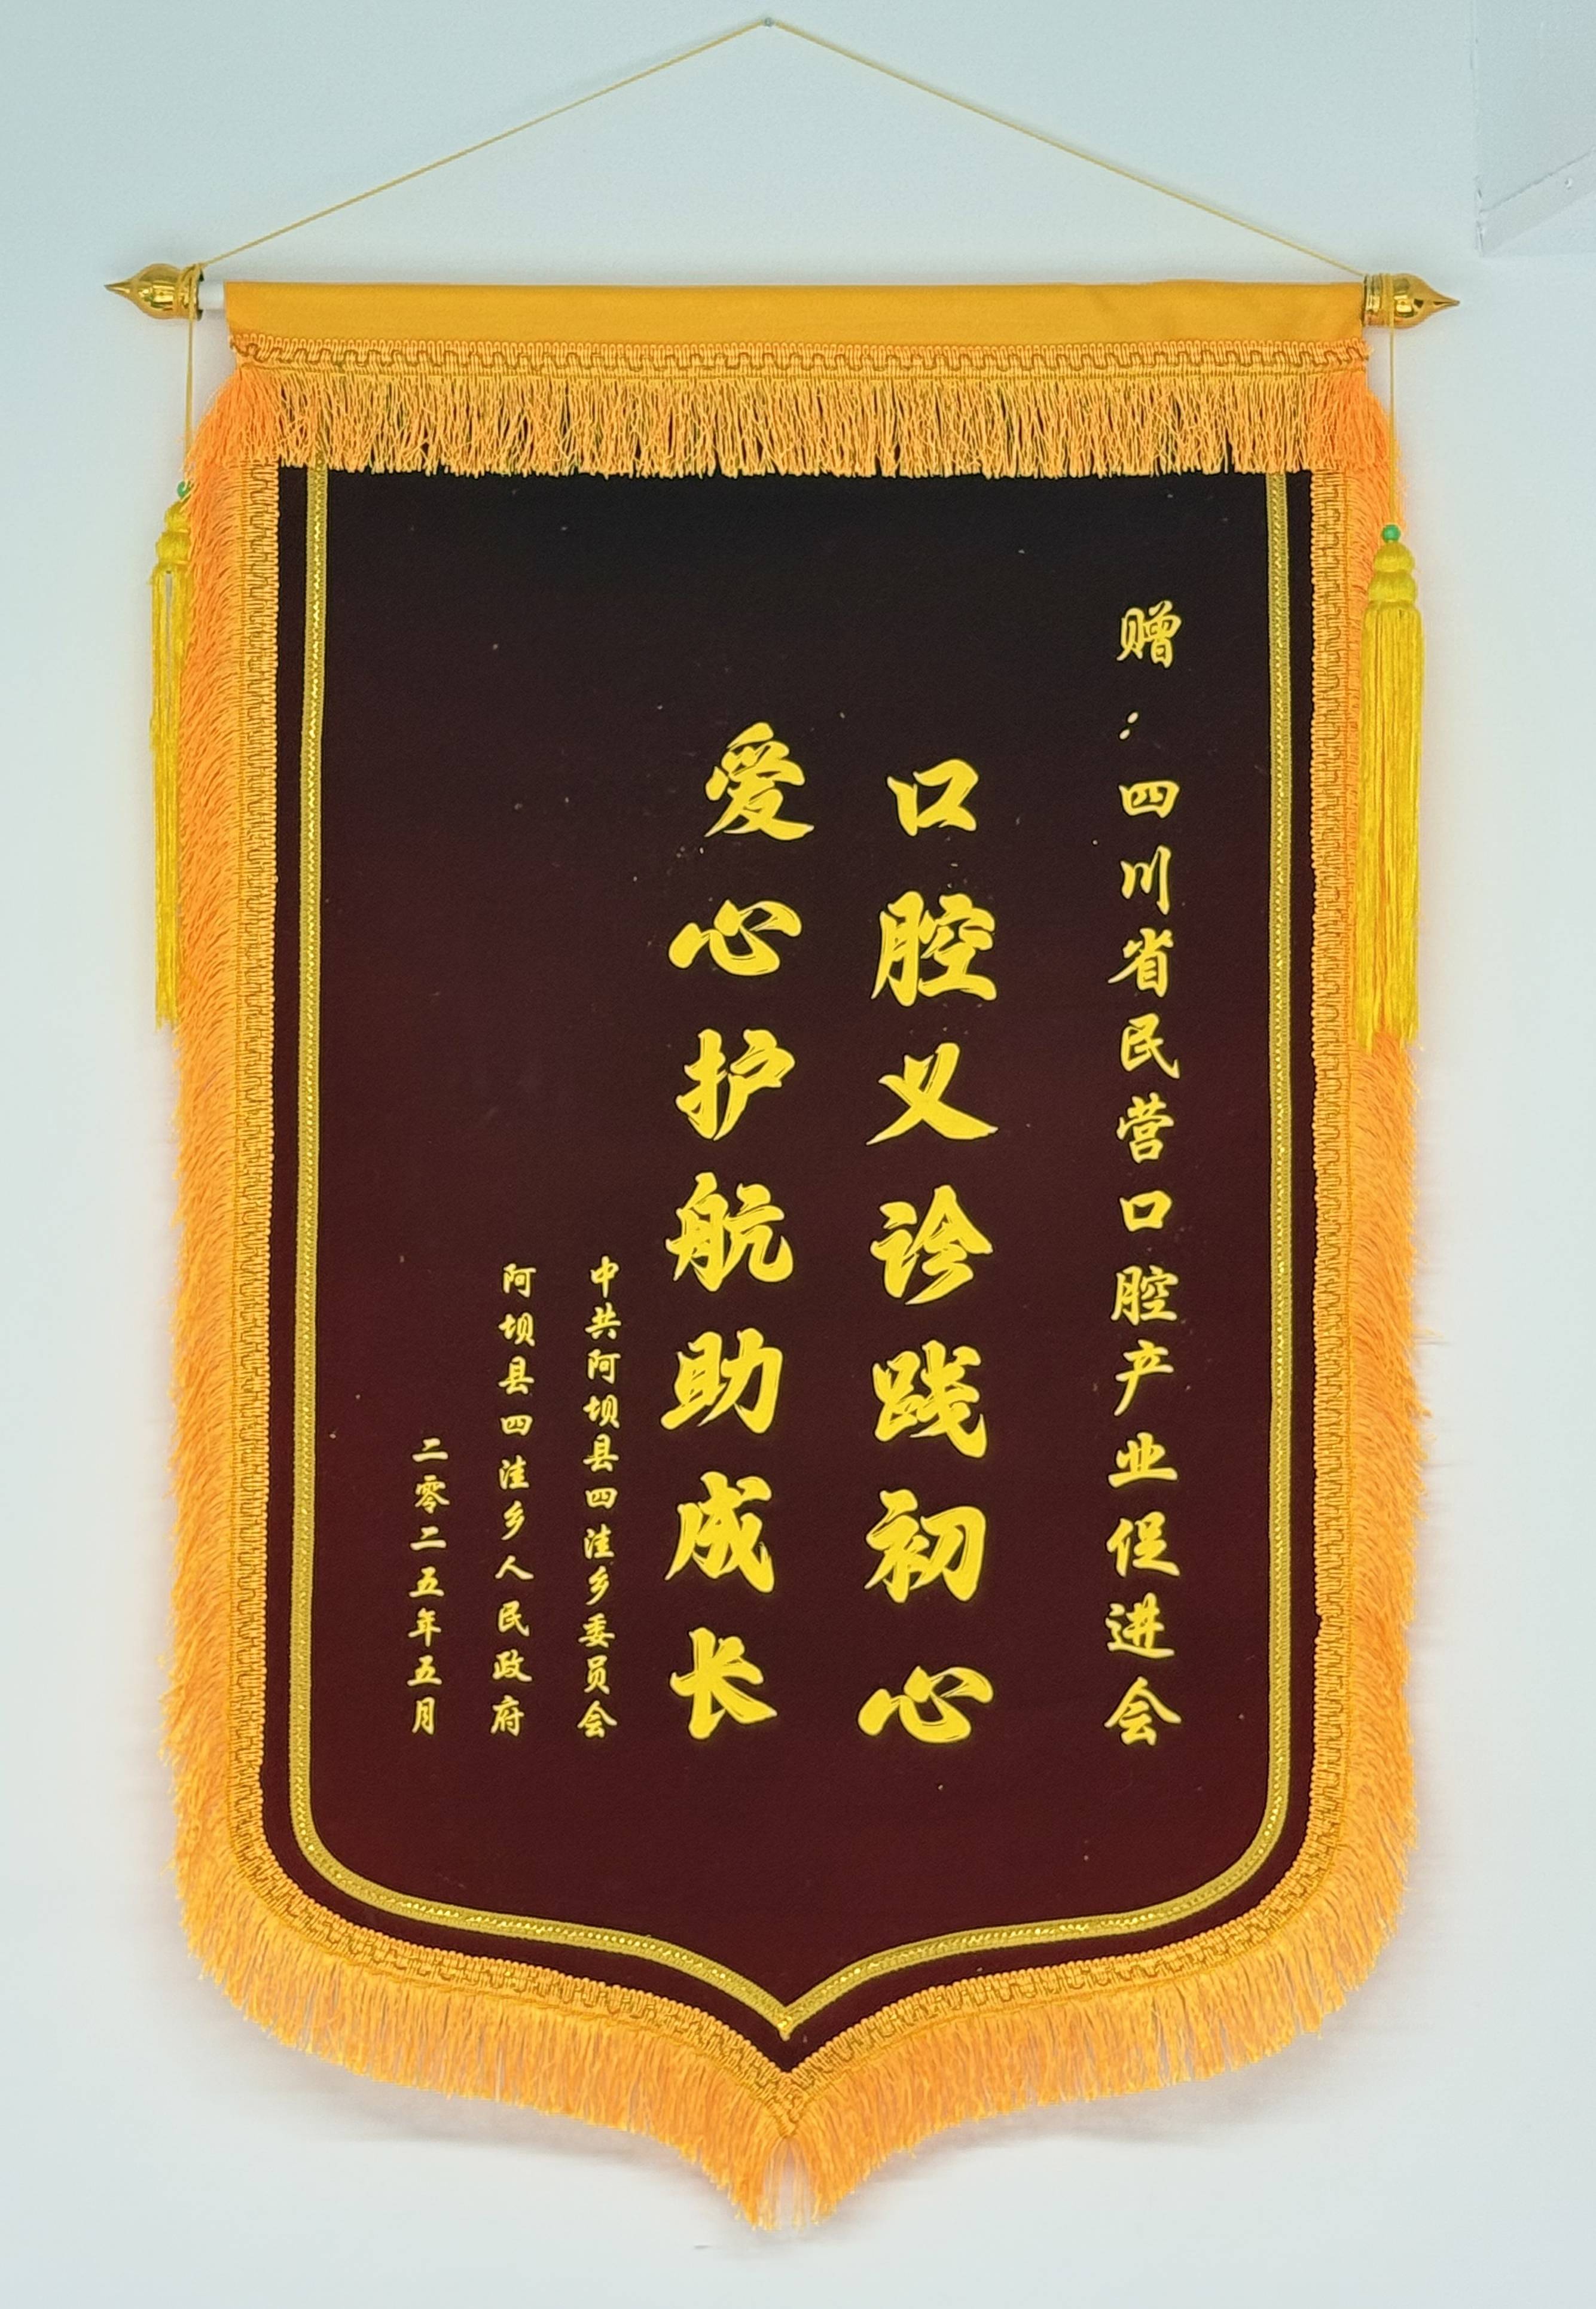 赠：四川省民营口腔产业促进会
口腔义诊践初心
爱心护航助成长
中共阿坝县四洼乡委员会
阿坝县四洼乡人民政府
二零二五年五月